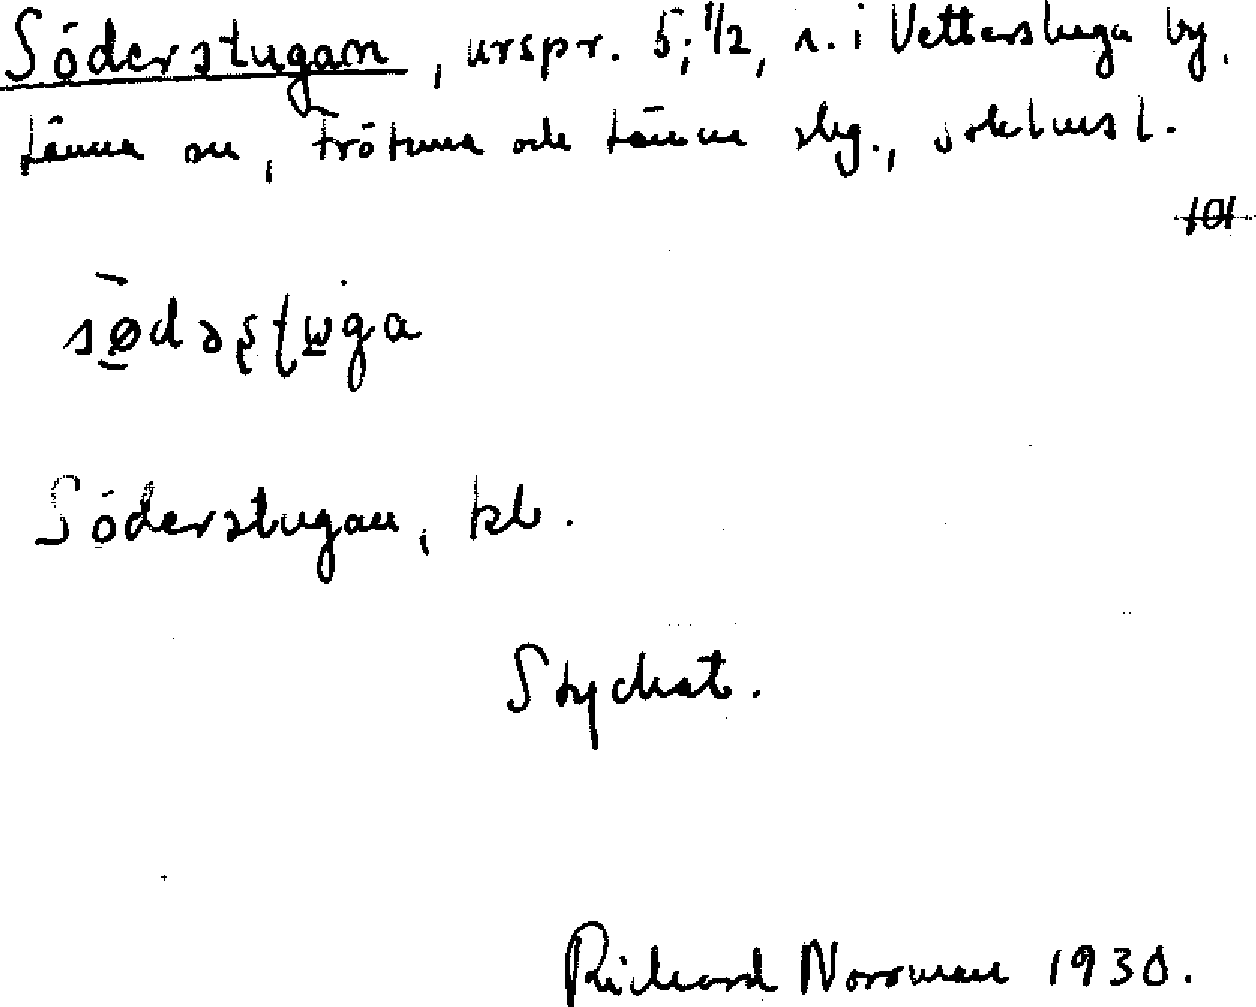 Söderstugan, urspr. 5; 1/2, n. i Vettershaga by,
Länna sn, Frötuna och Länna skg.,
södəʂʈuga
Söderstugan, kb.
Styckat.
Richard Norrman 1930.